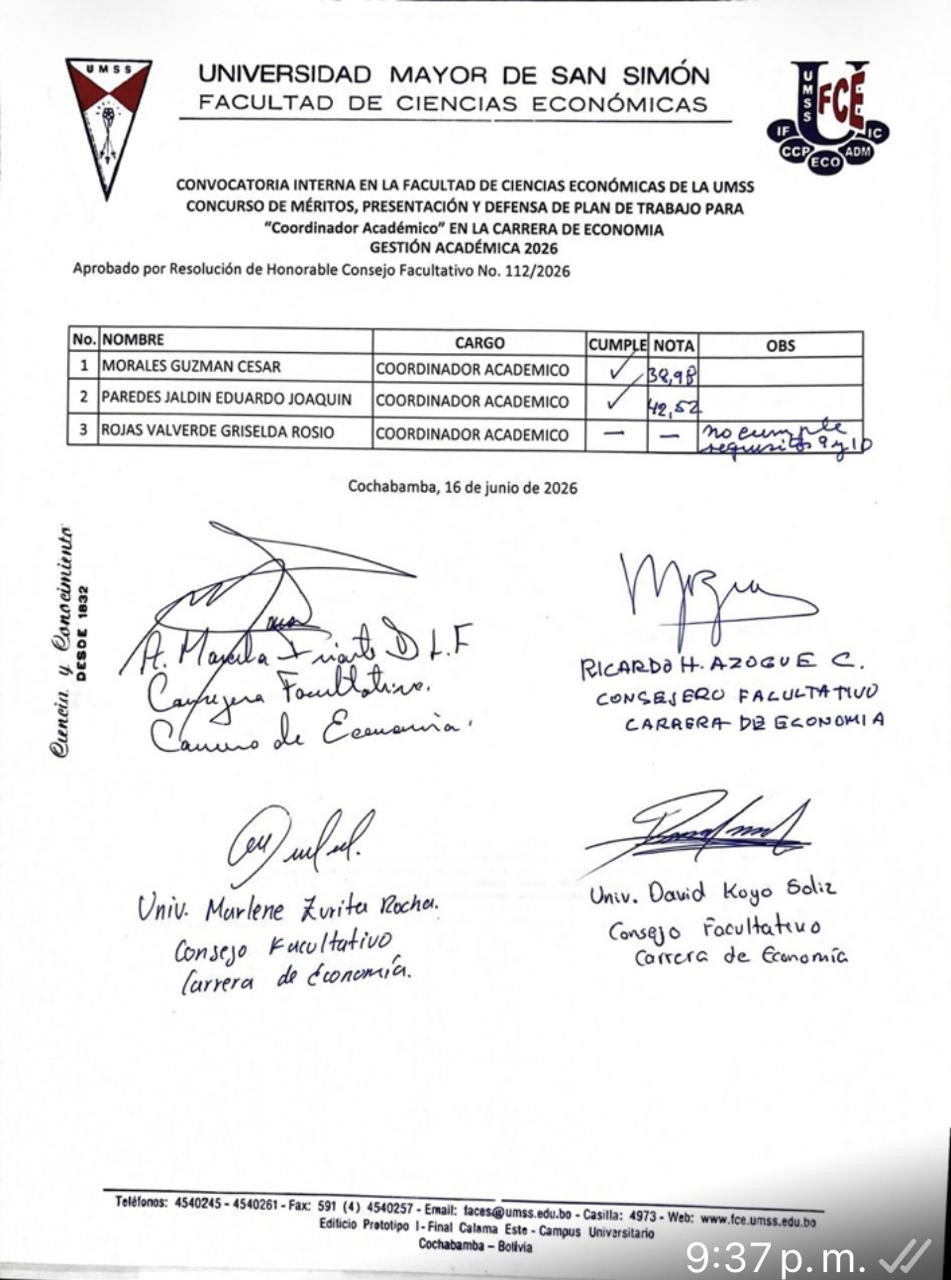 UMSS
UNIVERSIDAD MAYOR DE SAN SIMÓN
FACULTAD DE CIENCIAS ECONÓMICAS
UMSS FCE
IF CCP ECO ADM IC
CONVOCATORIA INTERNA EN LA FACULTAD DE CIENCIAS ECONÓMICAS DE LA UMSS
CONCURSO DE MÉRITOS, PRESENTACIÓN Y DEFENSA DE PLAN DE TRABAJO PARA
“Coordinador Académico” EN LA CARRERA DE ECONOMIA
GESTIÓN ACADÉMICA 2026
Aprobado por Resolución de Honorable Consejo Facultativo No. 112/2026
No. NOMBRE CARGO CUMPLE NOTA OBS
1 MORALES GUZMAN CESAR COORDINADOR ACADEMICO ✓ 38,98
2 PAREDES JALDIN EDUARDO JOAQUIN COORDINADOR ACADEMICO ✓ 42,52
3 ROJAS VALVERDE GRISELDA ROSIO COORDINADOR ACADEMICO — — no cumple
requisitos 9 y 10
Cochabamba, 16 de junio de 2026
Ciencia y Conocimiento
DESDE 1832
A. Marcela Iriarte D L.F
Facultativa.
de Economía.
RICARDO H. AZOGUE C.
CONSEJERO FACULTATIVO
CARRERA DE ECONOMIA
Univ. Marlene Zurita Rocha.
Consejo Facultativo
Carrera de Economía.
Univ. David Koyo Soliz
Consejo Facultativo
Carrera de Economía
Teléfonos: 4540245 - 4540261 - Fax: 591 (4) 4540257 - Email: faces@umss.edu.bo - Casilla: 4973 - Web: www.fce.umss.edu.bo
Edificio Prototipo I - Final Calama Este - Campus Universitario
Cochabamba – Bolivia
9:37 p.m.